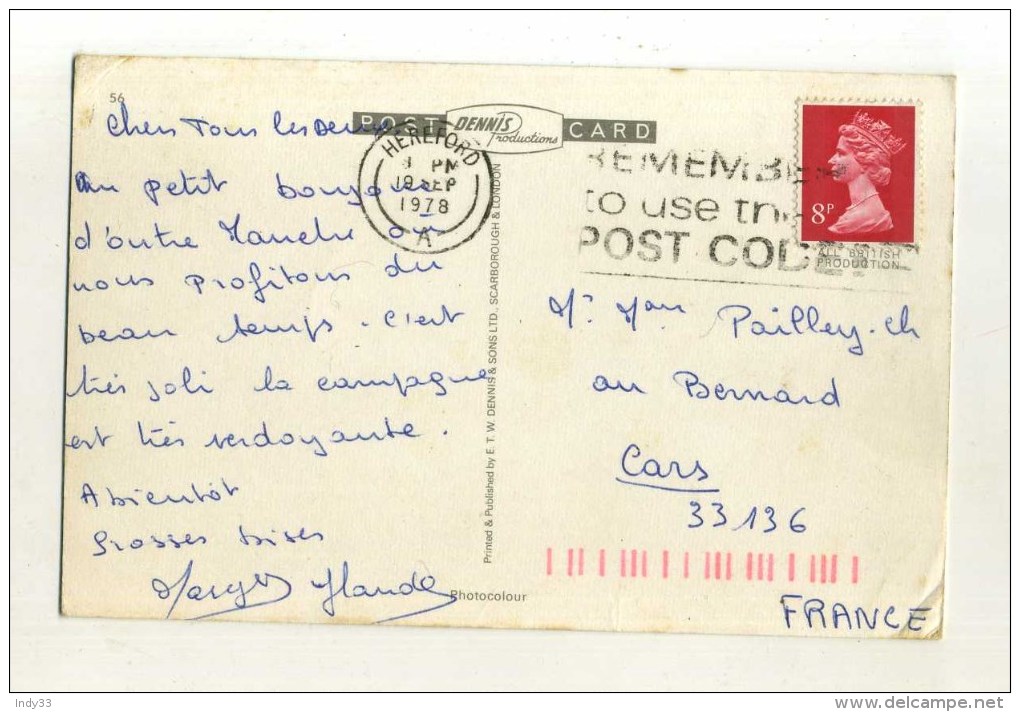 56
POST CARD
DENNIS
Productions
Chers Tous les Deux
un petit bonjour
d'outre Manche ou
nous profitons du
beau temps. C'est
très joli la campagne
est très verdoyante.
A bientôt
Grosses bises
HEREFORD
PM
19 SEP
1978
A
REMEMBER
to use the
POST CODE
8P
ALL BRITISH
PRODUCTION
Printed & Published by E. T. W. DENNIS & SONS LTD., SCARBOROUGH & LONDON
Photocolour
Mr Mme Pailley. ch
au Bernard
Cars
33136
FRANCE
Indy33
delcampe.net